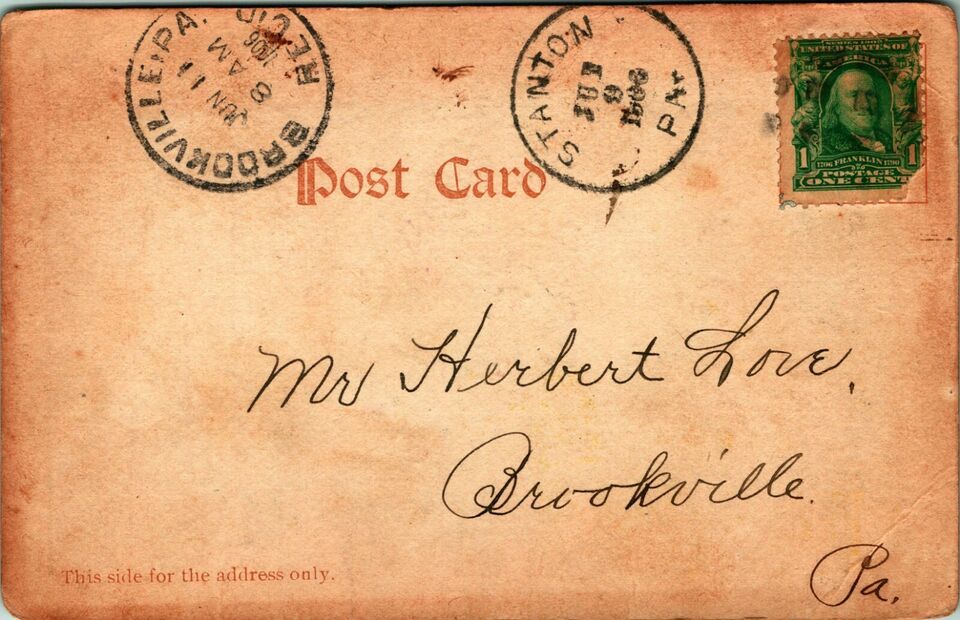 BROOKVILLE, PA.
JUN 11
8 AM
1906
REC'D
STANTON
JUN
9
1906
PA
SERIES 1902
UNITED STATES OF
AMERICA
1 1
1706 FRANKLIN 1790
POSTAGE
ONE CENT
Post Card
Mr Herbert Love,
Brookville.
Pa.
This side for the address only.